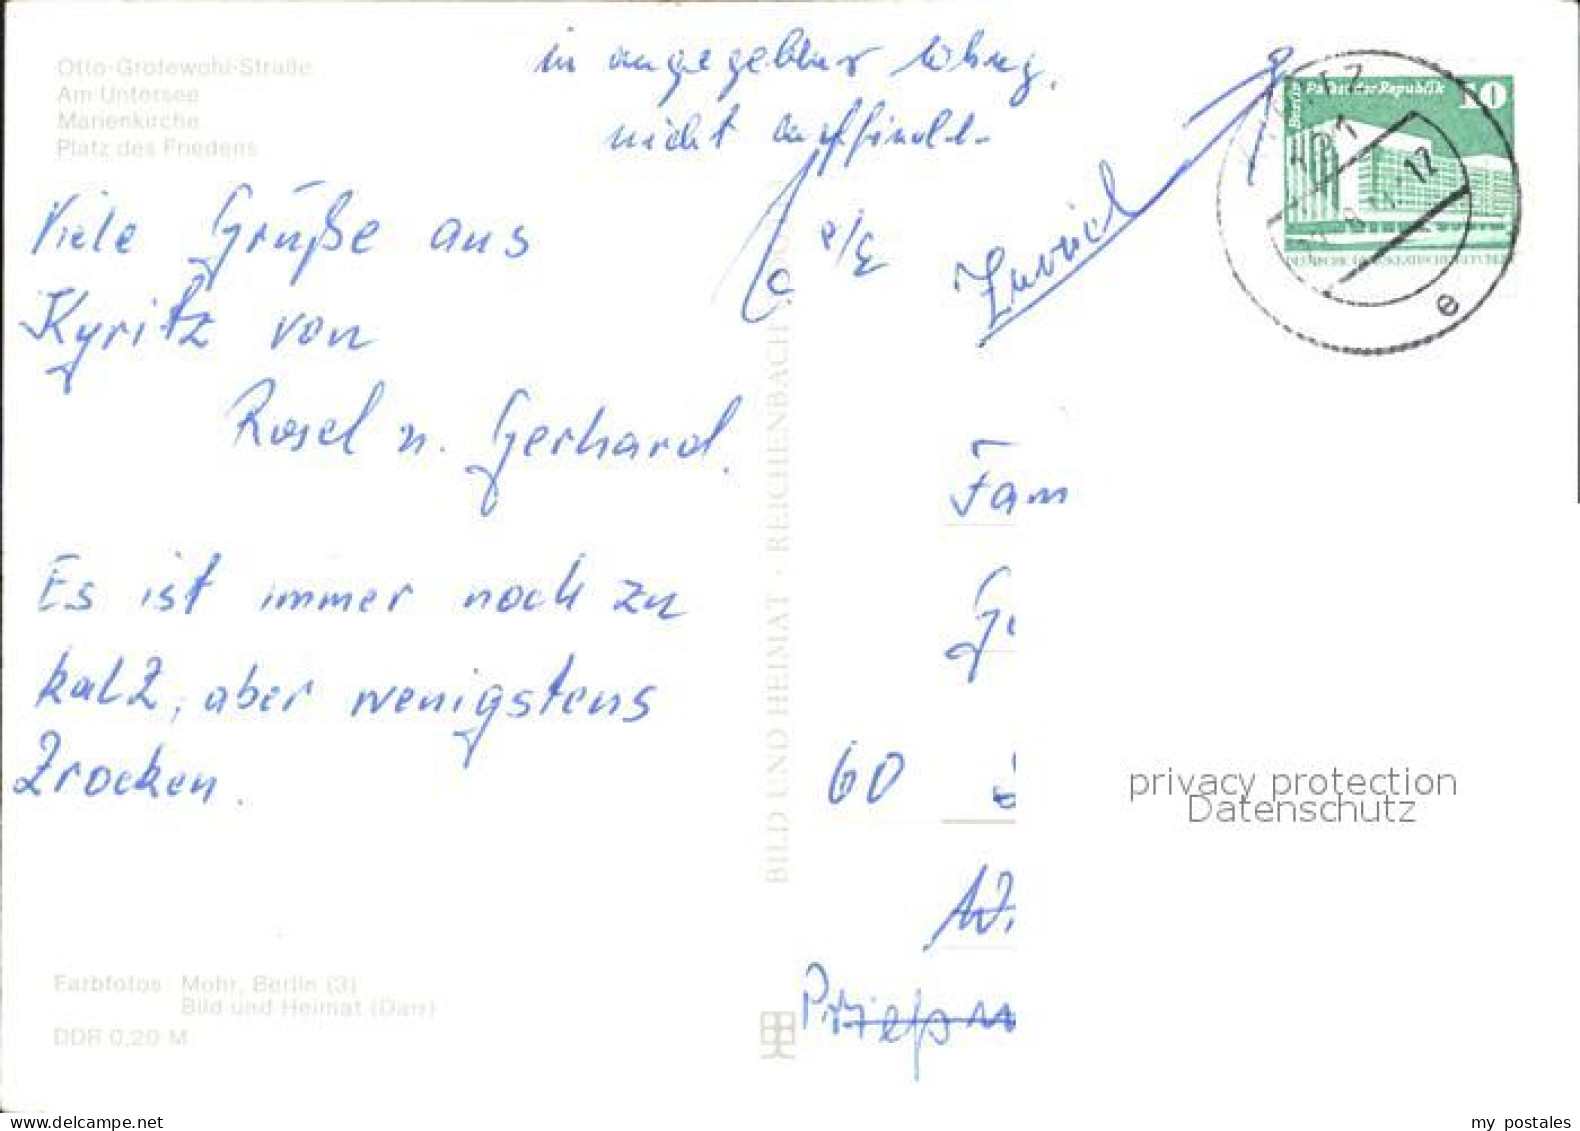 Otto-Grotewohl-Straße
Am Untersee
Marienkirche
Platz des Friedens
in angegebener Whng.
nicht auffindb.
Zurück
Viele Grüße aus
Kyritz von
Rosel u. Gerhard.
Es ist immer noch zu
kalt, aber wenigstens
trocken.
Farbfotos: Mohr, Berlin (3)
Bild und Heimat (Darr)
DDR 0,20 M
BILD UND HEIMAT · REICHENBACH
Berlin Palast der Republik 10
DEUTSCHE DEMOKRATISCHE REPUBLIK
KYRITZ
12
e
Fam
60
privacy protection
Datenschutz
www.delcampe.net
my postales